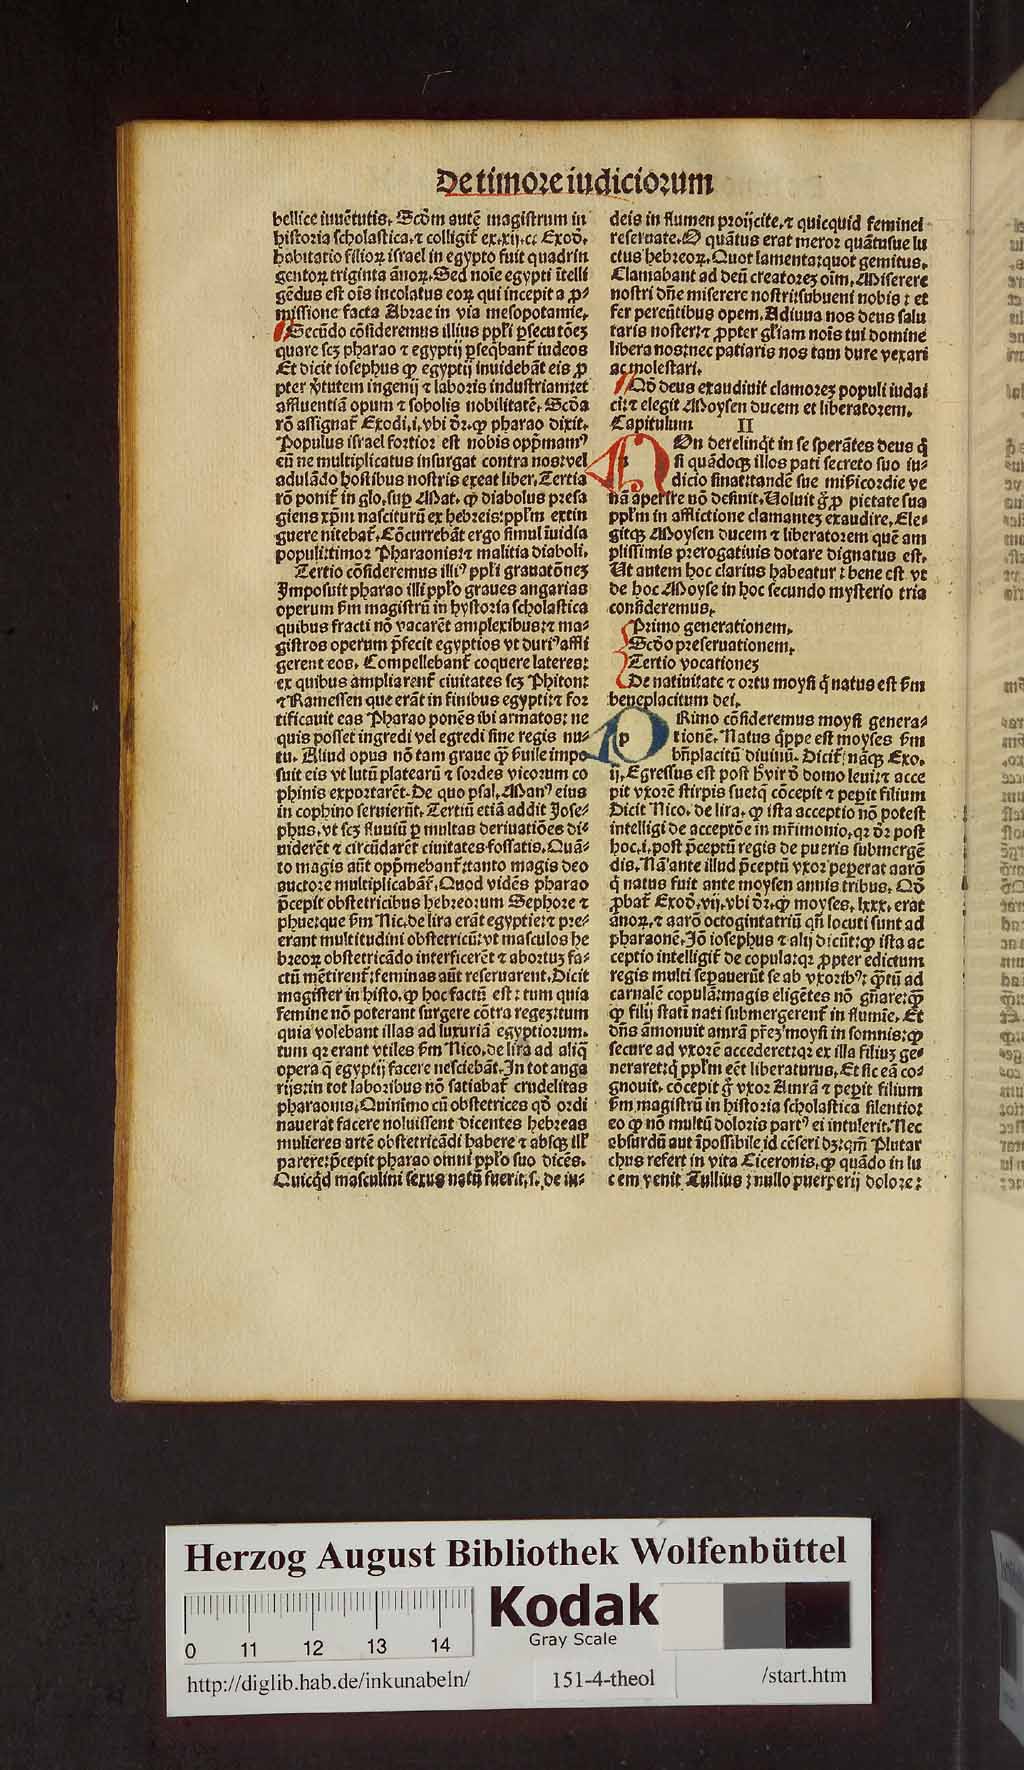 De timore iudiciorum
bellice iuuētutis. Scd̄m autē magistrum in
historia scholastica, ⁊ colligit̄ ex .xij. c. Exod̄.
habitatio filioꝝ israel in egypto fuit quadrin
gentoꝝ triginta ānoꝝ. Sed noīe egypti ītelli
gēdus est oīs incolatus eoꝝ qui incepit a ꝓ-
missione facta Abrae in via mesopotamie.
Secūdo cōsideremus illius ppl̄i ꝑsecutōeꝫ
quare scꝫ pharao ⁊ egyptij ꝑseq̄bant̄ iudeos
Et dicit iosephus ꝙ egyptij inuidebāt eis ꝓ
pter v̄tutem ingenij ⁊ laboris industriam: et
affluentiā opum ⁊ sobolis nobilitatē. Scd̄a
rō assignat̄ Exodi .i. vbi dr̄. ꝙ pharao dixit.
Populus israel fortior est nobis opp̄mamꝰ
eū ne multiplicatus insurgat contra nos: vel
adulādo hostibus nostris exeat liber. Tertia
rō ponit̄ in glo. suꝑ Mat. ꝙ diabolus presa
giens xp̄m nasciturū ex hebreis: ppl̄m extin
guere nitebat̄. Cōcurrebāt ergo simul īuidia
populi: timor Pharaonis: ⁊ malitia diaboli.
Tertio cōsideremus illiꝰ ppl̄i grauatōneꝫ
Imposuit pharao illi ppl̄o graues angarias
operum s̄m magistrū in hystoria scholastica
quibus fracti nō vacarēt amplexibus: ⁊ ma-
gistros operum p̄fecit egyptios vt duriꝰ affli
gerent eos. Compellebant̄ coquere lateres:
ex quibus ampliarent̄ ciuitates scꝫ Phitont
⁊ Ramessen que erāt in finibus egypti: ⁊ for
tificauit eas Pharao ponēs ibi armatos: ne
quis posset ingredi vel egredi sine regis nu-
tu. Aliud opus nō tam graue ꝙ̄ s̄uile impo
suit eis vt lutū platearū ⁊ sordes vicorum co
phinis exportarēt. De quo psal. Manꝰ eius
in cophino seruierūt. Tertiū etiā addit Jose-
phus, vt scꝫ fluuiū ꝑ multas deriuatiōes di-
uiderēt ⁊ circūdarēt ciuitates fossatis. Quā-
to magis aūt opp̄mebant̄: tanto magis deo
auctore multiplicabāt̄. Quod vidēs pharao
p̄cepit obstetricibus hebreorum Sephore ⁊
phue: que s̄m Nic. de lira erāt egyptie: ⁊ pre-
erant multitudini obstetricū: vt masculos he
breoꝝ obstetricādo interficerēt ⁊ abortuꝫ fa-
ctū mētirent̄: feminas aūt reseruarent. Dicit
magister in histo. ꝙ hoc factū est: tum quia
femine nō poterant surgere cōtra regeꝫ: tum
quia volebant illas ad luxuriā egyptiorum.
tum qꝛ erant vtiles s̄m Nico. de lira ad aliq̄
opera q̄ egyptij facere nesciebāt. In tot anga
rijs: in tot laboribus nō satiabat̄ crudelitas
pharaonis. Quinimo cū obstetrices qd̄ ordi
nauerat facere noluissent dicentes hebreas
mulieres artē obstetricādi habere ⁊ absqꝫ ill̄
parere: p̄cepit pharao omni ppl̄o suo dicēs.
Quicq̄d masculini sexus natū fuerit. s. de iu-
deis in flumen proijcite. ⁊ quicquid feminei
reseruate. O quātus erat meror quātusue lu
ctus hebreoꝝ. Quot lamenta: quot gemitus.
Clamabant ad deū creatoreꝫ oīm. Miserere
nostri dn̄e miserere nostri: subueni nobis: et
fer pereūtibus opem. Adiuua nos deus salu
taris noster: ⁊ ꝓpter gl̄iam nois̄ tui domine
libera nos: nec patiaris nos tam dure vexari
ac molestari.
Qd̄ deus exaudiuit clamoreꝫ populi iudai
ci: ⁊ elegit Moysen ducem et liberatorem.
Capitulum II
NOn derelinq̄t in se sperātes deus q̄
si quādoqꝫ illos pati secreto suo iu-
dicio sinat: tandē sue mis̄icordie ve
nā aperire nō desinit. Voluit ḡ ꝓ pietate sua
ppl̄m in afflictione clamanteꝫ exaudire. Ele-
gitqꝫ Moysen ducem ⁊ liberatorem quē am
plissimis prerogatiuis dotare dignatus est.
Ut autem hoc clarius habeatur: bene est vt
de hoc Moyse in hoc secundo mysterio tria
consideremus.
Primo generationem.
Scd̄o preseruationem.
Tertio vocationeꝫ
De natiuitate ⁊ ortu moysi q̄ natus est s̄m
beneplacitum dei.
PRimo cōsideremus moysi genera-
tionē. Natus q̄ppe est moyses s̄m
bn̄placitū diuinū. Dicit̄ nāqꝫ Exo.
ij. Egressus est post h̄ vir d̄ domo leui: ⁊ acce
pit vxorē stirpis sue: q̄ cōcepit ⁊ peꝑit filium
Dicit Nico. de lira. ꝙ ista acceptio nō potest
intelligi de acceptōe in mr̄imonio. qꝛ dr̄ post
hoc. i. post p̄ceptū regis de pueris submergē
dis. Nā ante illud p̄ceptū vxor peperat aarō
q̄ natus fuit ante moysen annis tribus. Qd̄
ꝓbat̄ Exod̄. vij. vbi dr̄. ꝙ moyses .lxxx. erat
ānoꝝ. ⁊ aarō octogintatriū qn̄ locuti sunt ad
pharaonē. Jō iosephus ⁊ alij dicūt: ꝙ ista ac
ceptio intelligit̄ de copula: qꝛ ꝓpter edictum
regis multi seꝑauerūt se ab vxoribꝰ: ꝙ̄tū ad
carnalē copulā: magis eligētes nō gn̄are: ꝙ̄
ꝙ filij statī nati submergerent̄ in flumīe. Et
dn̄s āmonuit amrā pr̄eꝫ moysi in somnis: ꝙ
secure ad vxorē accederet: qꝛ ex illa filiuꝫ ge-
neraret: q̄ ppl̄m eēt liberaturus. Et sic eā co-
gnouit. cōcepit ḡ vxor Amrā ⁊ peꝑit filium
s̄m magistrū in historia scholastica silentio:
eo ꝙ nō multū doloris partꝰ ei intulerit. Nec
absurdū aut īpossibile id cēseri dꝫ: qm̄ Plutar
chus refert in vita Ciceronis. ꝙ quādo in lu
cem venit Tullius: nullo puerperij dolore:
Herzog August Bibliothek Wolfenbüttel
0 11 12 13 14
Kodak
Gray Scale
http://diglib.hab.de/inkunabeln/ 151-4-theol /start.htm